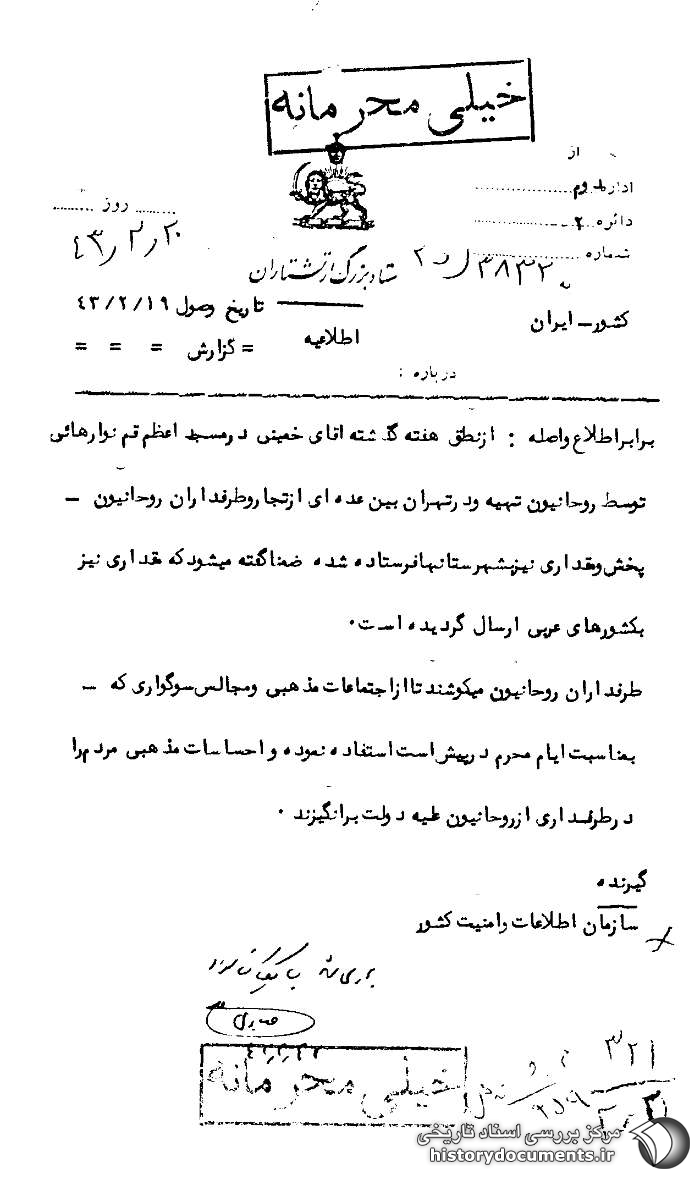 خیلی محرمانه
از
اداره دوم
دائره ۲
شماره
روز
۴۳/۲/۲۰
ستاد بزرگ ارتشتاران
کشور ـ ایران
اطلاعیه
تاریخ وصول ۴۳/۲/۱۹
= گزارش = = =
درباره :
برابر اطلاع واصله : از نطق هفته گذشته اقای خمینی در مسجد اعظم قم نوارهائی
توسط روحانیون تهیه ودرتهران بین عده ای ازتجاروطرفداران روحانیون ـ
پخش ومقداری نیزبشهرستانهافرستاده شده ضمناگفته میشودکه مقداری نیز
بکشورهای عربی ارسال گردیده است.
طرفداران روحانیون میکوشند تاازاجتماعات مذهبی ومجالس سوگواری که ـ
بمناسبت ایام محرم درپیش است استفاده نموده و احساسات مذهبی مردم را
درطرفداری ازروحانیون علیه دولت برانگیزند .
گیرنده
سازمان اطلاعات وامنیت کشور
خیلی محرمانه
۳۲۱
مرکز بررسی اسناد تاریخی
historydocuments.ir